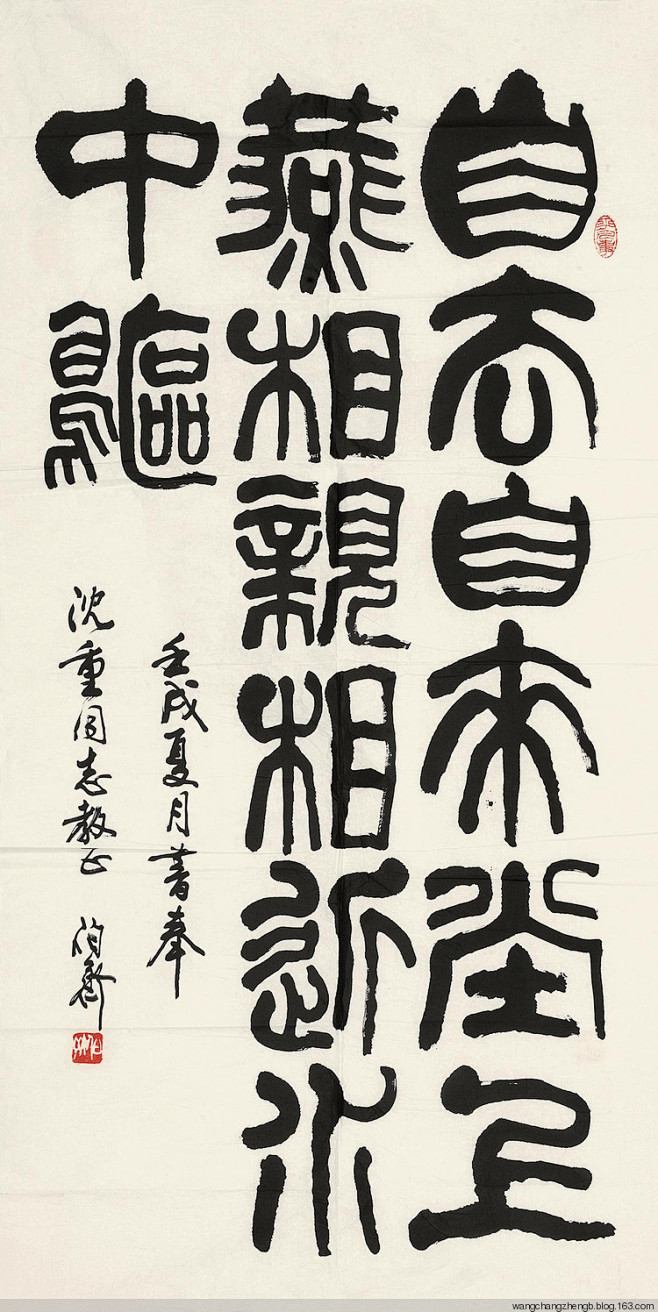 自去自來堂上
燕相親相近水
中鷗
壬戌夏月書奉
沈重同志教正
wangchangzhengb.blog.163.com